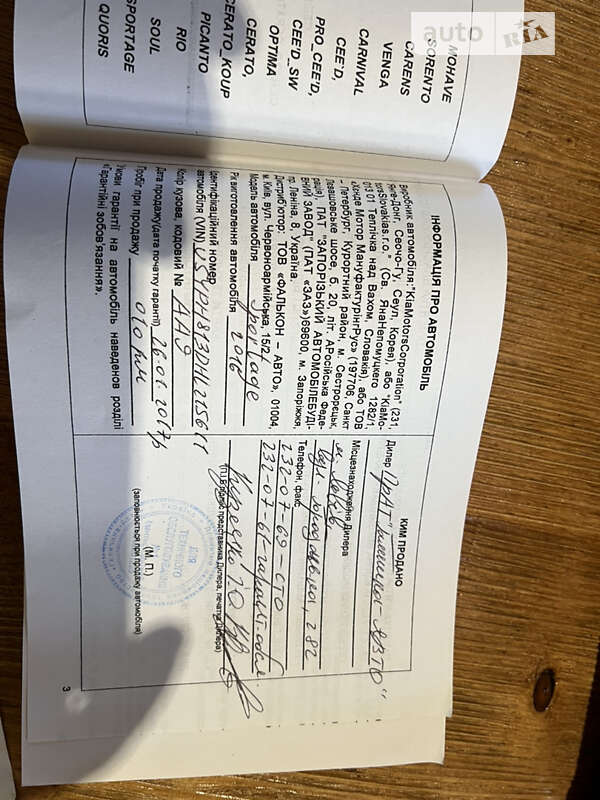 auto RIA
MOHAVE
SORENTO
CARENS
VENGA
CARNIVAL
CEE'D,
PRO_CEE'D,
CEE'D_SW
OPTIMA
CERATO,
CERATO_KOUP
PICANTO
RIO
SOUL
SPORTAGE
QUORIS
ІНФОРМАЦІЯ ПРО АВТОМОБІЛЬ
Виробник автомобіля:"KiaMotorsCorporation" (231,
Янгь-Донг, Сеочо-Гу, Сеул, Корея), або "KiaMo-
torsSlovakias.r.o." (Св. ЯнаНепомуцкего 1282/1,
013 01 Теплічка над Вахом, Словакія), або ТОВ
«Хенде Мотор МануфактурінгРус» (197706, Санкт
– Петербург, Курортний район, м. Сестрорецьк,
Левашовське шосе, б. 20, літ. АРосійська Феде-
рація). ПАТ "ЗАПОРІЗЬКИЙ АВТОМОБІЛЕБУДІ-
ВНИЙ ЗАВОД" (ПАТ «ЗАЗ»)69600, м. Запоріжжя,
пр. Леніна, 8, Україна
Дистриб'ютор: ТОВ «ФАЛЬКОН – АВТО», 01004,
м. Київ, вул. Червоноармійська, 15/2
Модель автомобіля Sportage
Рік виготовлення автомобіля 2016
Ідентифікаційний номер
автомобіля (VIN)
Колір кузова, кодовий № AA9
Дата продажу(дата початку гарантії) 26.01.2017р
Пробіг при продажу 010 км
Умови гарантії на автомобіль наведенов розділі
«Гарантійні зобов'язання».
КИМ ПРОДАНО
Дилер
Місцезнаходження Дилера
м. Львів
282
Телефон, факс
232-07-69 – СТО
232-07-61-
(П.І.Б, підпис представника Дилера, печатка Дилера)
ДЛЯ
ТЕХНІЧНОГО
(М. П.)
(заповнюється при продажу автомобіля)
3